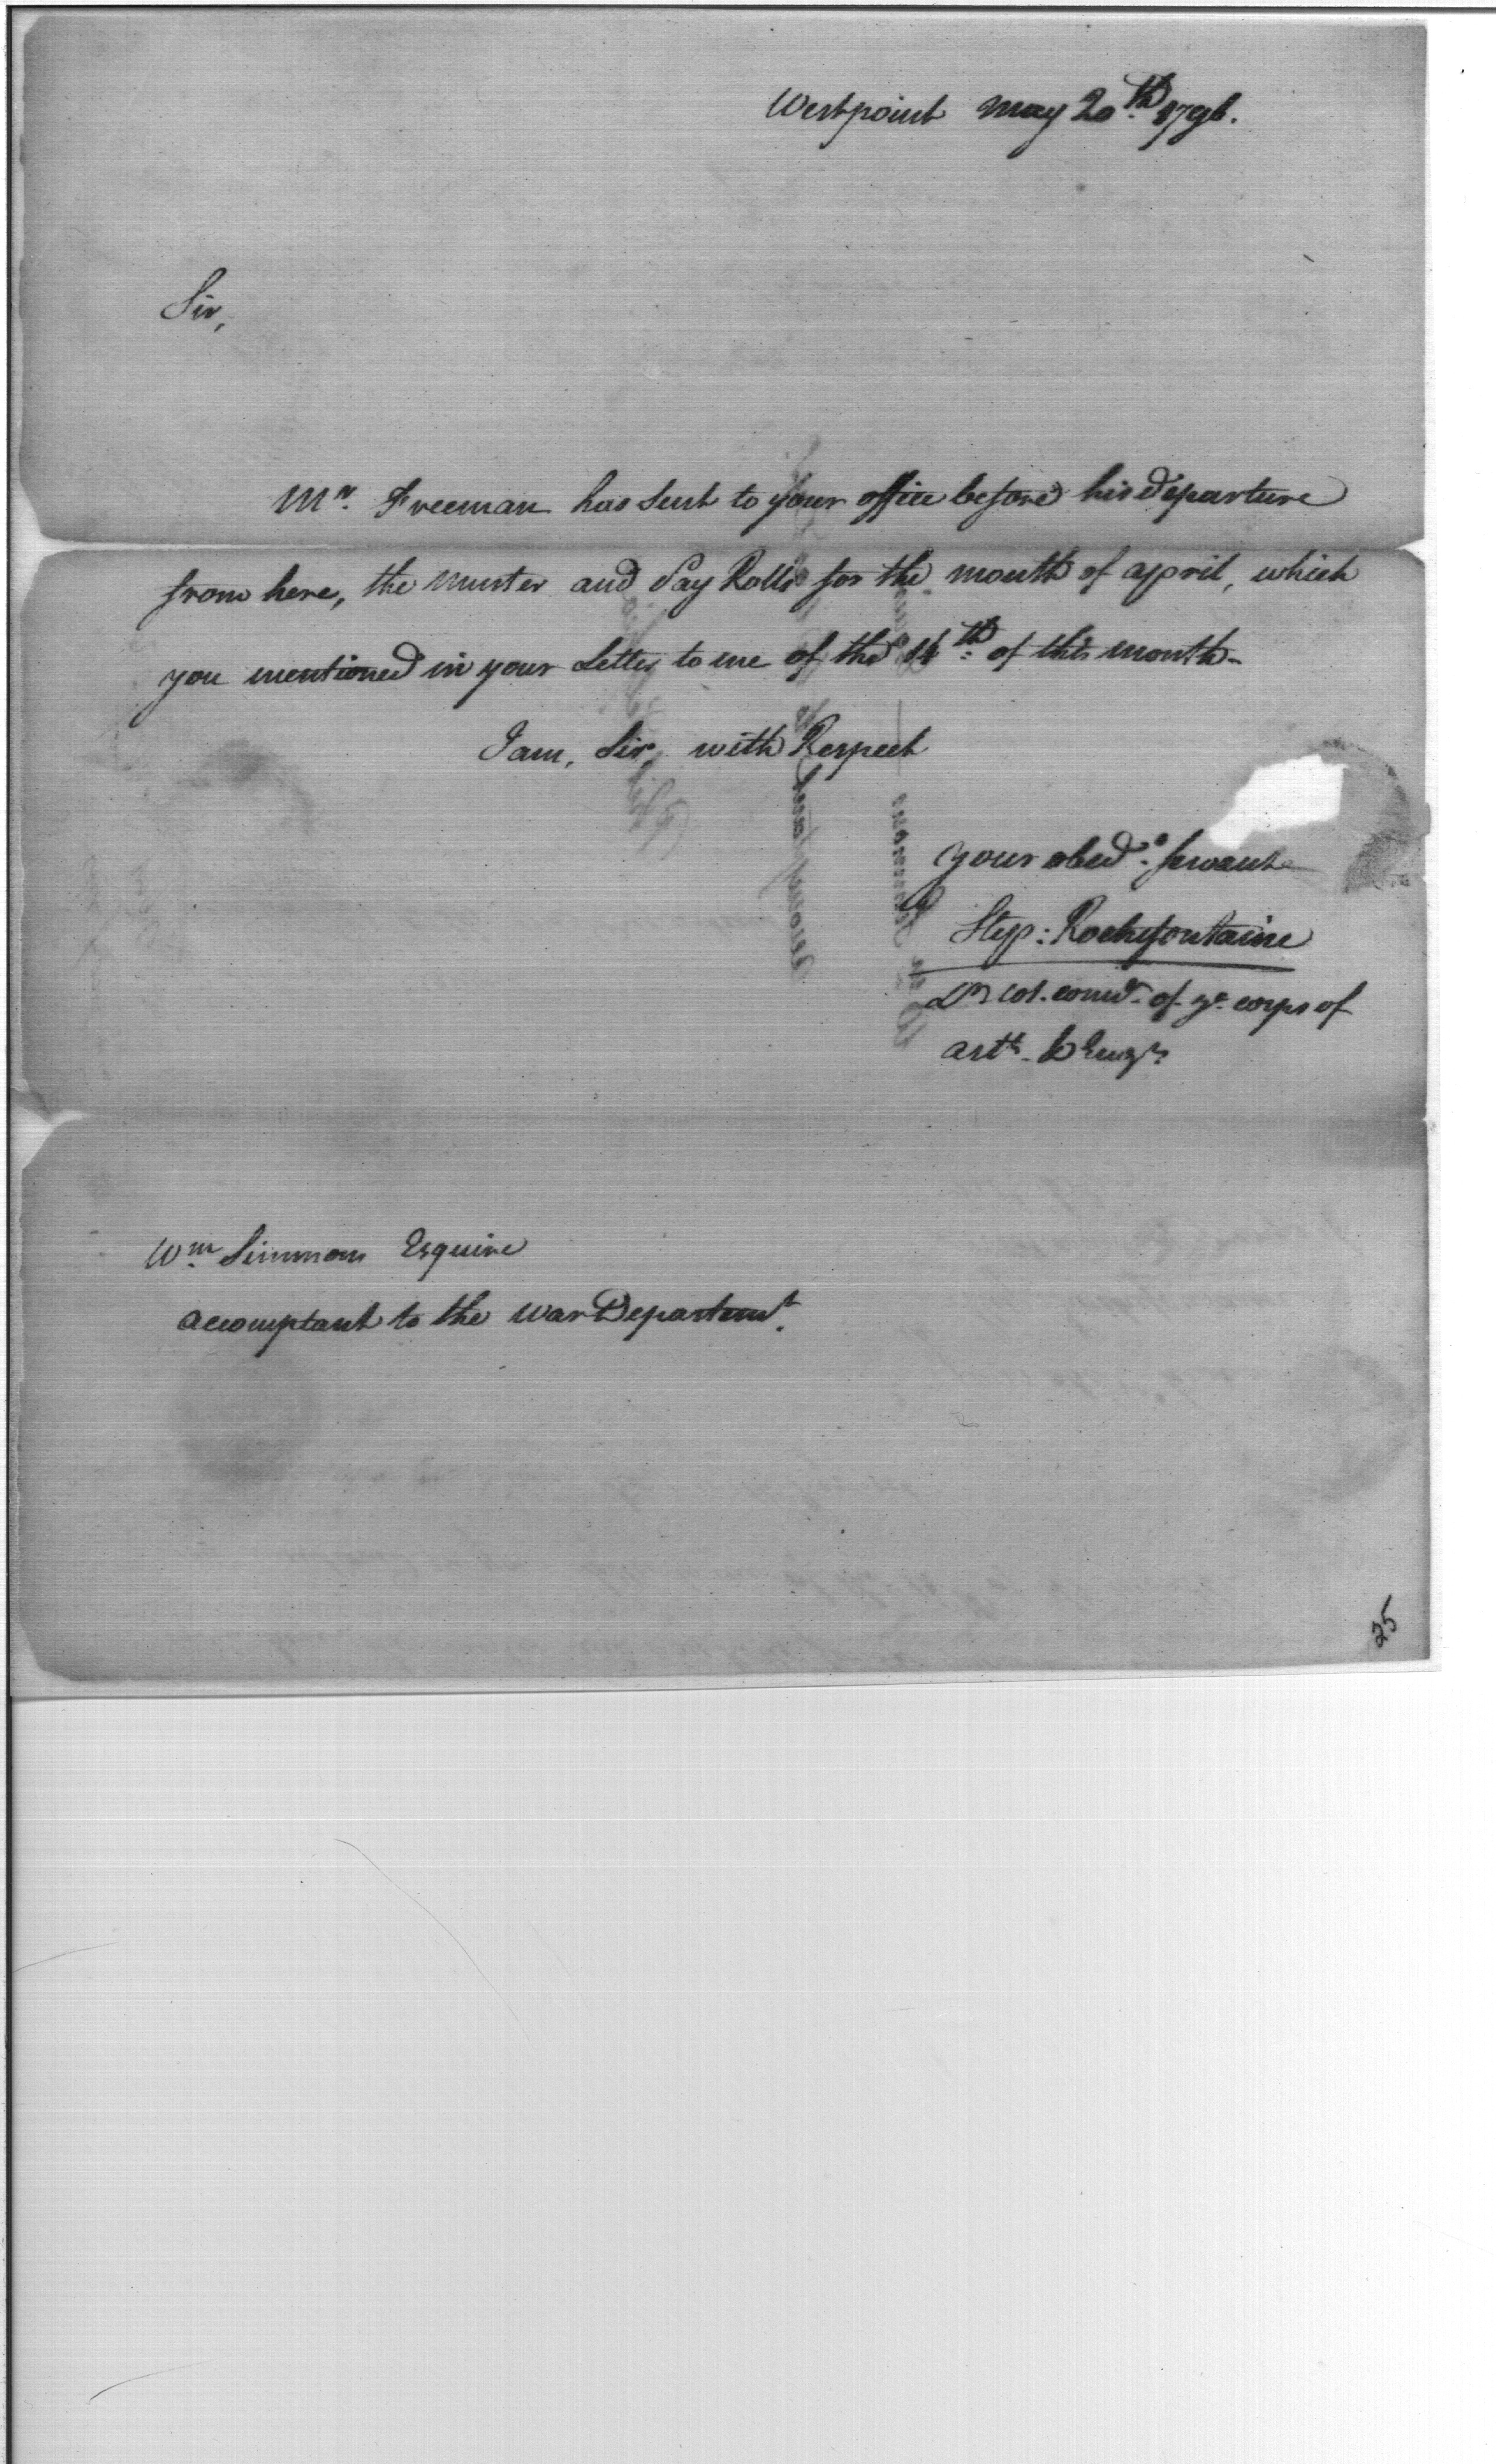 Westpoint may 20th. 1796.
Sir,
Mr. Freeman has sent to your office before his departure
from here, the muster and Pay Rolls for the month of april, which
you mentioned in your Letter to me of the 14th. of this month-
I am, Sir, with Respect
your obed.t servant
Step: Rochefontaine
Lt. Col. comd.- of ye corps of
art.- & Engrs
Wm. Simmons Esquire
accomptant to the War Departemt.
25